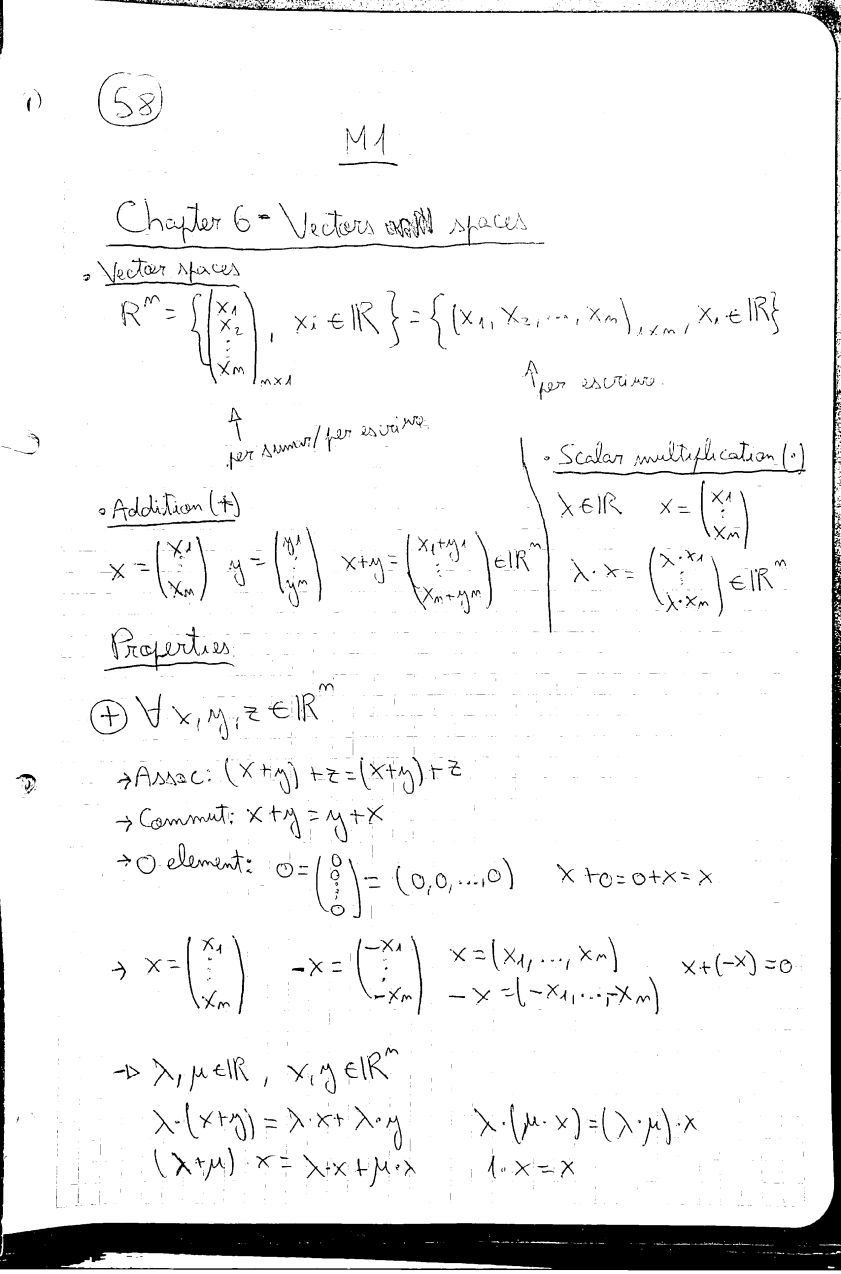 1)
58
M1
Chapter 6 - Vectors spaces
• Vector spaces
R^n = { (x1 x2 ⋮ xn)_{n×1}, xi ∈ ℝ } = { (x1, x2, ..., xn)_{1×n}, xi ∈ ℝ }
↑ per sumar/per escriure.
↑ per escriure.
• Addition (+)
x = (x1 ⋮ xn) y = (y1 ⋮ yn) x+y = (x1+y1 ⋮ xn+yn) ∈ ℝ^n
• Scalar multiplication (·)
λ ∈ ℝ x = (x1 ⋮ xn)
λ · x = (λ·x1 ⋮ λ·xn) ∈ ℝ^n
Properties
⊕ ∀ x, y, z ∈ ℝ^n
→ Assoc: (x+y)+z=(x+y)+z
→ Commut: x+y=y+x
→ 0 element: 0 = (0 0 ⋮ 0) = (0,0,...,0) x+0=0+x=x
→ x = (x1 ⋮ xn) -x = (-x1 ⋮ -xn) x = (x1, ..., xn) x+(-x)=0
-x = (-x1, ..., -xn)
→ λ, μ ∈ ℝ, x, y ∈ ℝ^n
λ·(x+y) = λ·x + λ·y λ·(μ·x) = (λ·μ)·x
(λ+μ)·x = λ·x + μ·x 1·x = x